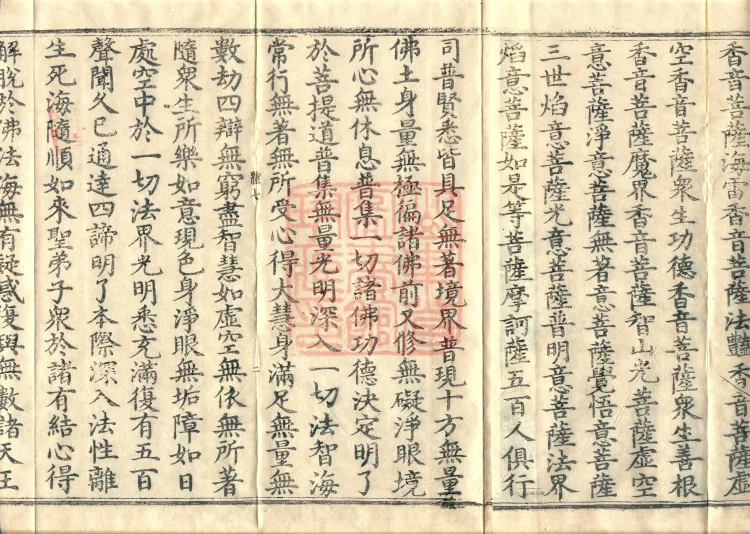 香音菩薩海雷香音菩薩法豔香音菩薩虛
空香音菩薩衆生功德香音菩薩衆生善根
香音菩薩魔界香音菩薩智山光菩薩虛空
意菩薩淨意菩薩無著意菩薩覺悟意菩薩
三世焰意菩薩光意菩薩普明意菩薩法界
焰意菩薩如是等菩薩摩訶薩五百人俱行
司普賢悉皆具足無著境界普現十方無量
佛土身量無極徧諸佛前又修無礙淨眼境
所心無休息普集一切諸佛功德決定明了
於菩提道普集無量光明深入一切法智海
常行無著無所受心得大慧身滿足無量無
數劫四辯無窮盡智慧如虛空無依無所著
隨衆生所樂如意現色身淨眼無垢障如日
處空中於一切法界光明悉充滿復有五百
聲聞久已通達四諦明了本際深入法性離
生死海隨順如來聖弟子衆於諸有結心得
解脫於佛法海無有疑惑復與無數諸天王